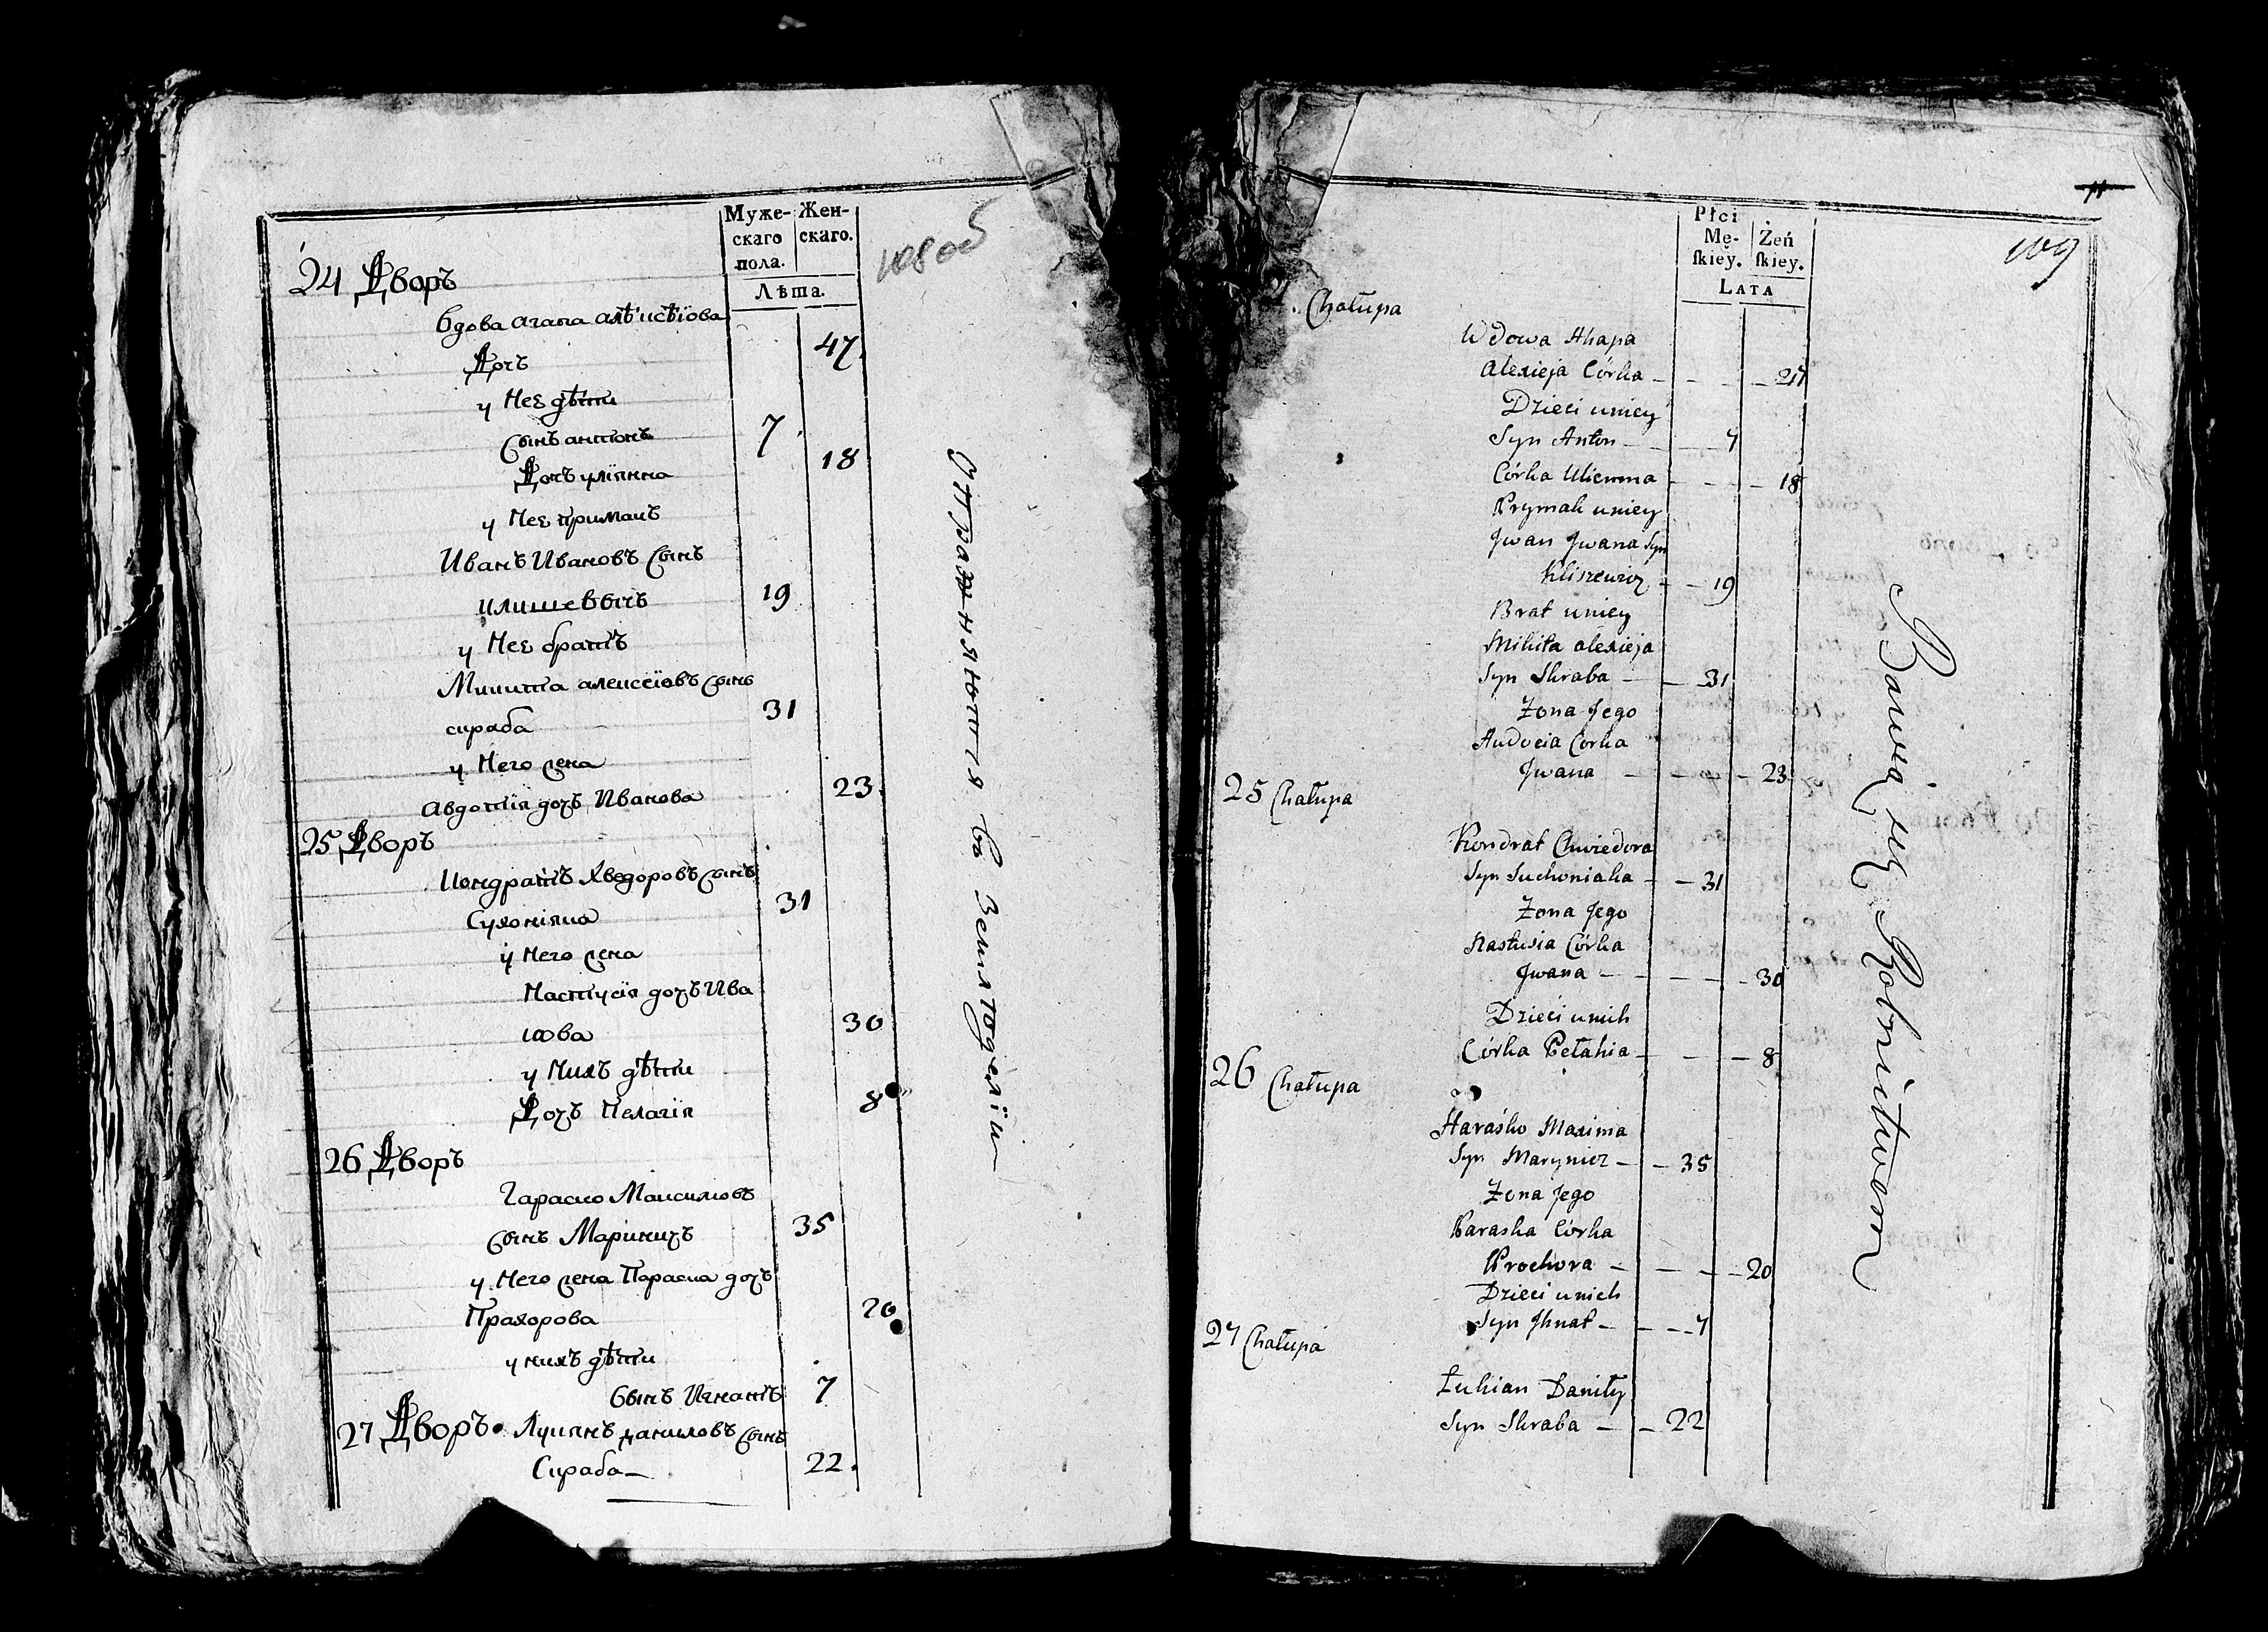 Муже-
скаго
пола.
Жен-
скаго.
Лѣта.
108 об
24 Дворъ
Вдова Агапа Алѣксѣiова
Дочь 47
у Нее дѣти
Сынъ антонъ 7
Дочь улiянна 18
у Нее примакъ
Иванъ Ивановъ Сынъ
клишевичъ 19
у Нее братъ
Микита алексеiовъ Сынъ
скраба 31
у Него жена
Авдотiя дочъ Иванова 23
25 Дворъ
Кондратъ Хведоровъ Сынъ
Сухоняка 31
у Него жена
Настусiя дочъ Ива
нова 30
у Нихъ дѣти
Дочъ Пелагiя 8
26 Дворъ
Гараско Максимовъ
Сынъ Мариничъ 35
у Него жена Параска дочъ
Прахорова 20
у нихъ дѣти
Сынъ Игнатъ 7
27 Дворъ. Лукянъ даниловъ Сынъ
Скраба 22.
упражняются въ Земледелiи
Płci
Mę-
skiey.
Żeń
skiey.
LATA
11
109
Chałupa
Wdowa Ahapa
Alexieja Córka
Dzieci uniey
Syn Anton 7
Córka Ulienna 18
Prymak uniey
Jwan Jwana Syn
Kliszewicz 19
Brat uniey
Mikita alexieja
Syn Skraba 31
Żona Jego
Audocia Corka
Jwana 23
25 Chałupa
Kondrat Chwiedora
Syn Suchoniaka 31
Żona Jego
Nastusia Córka
Jwana 30
Dzieci unich
Córka Pełahia 8
26 Chałupa
Haraśko Maxima
Syn Marynicz 35
Żona Jego
Paraska Córka
Prochora 20
Dzieci unich
Syn Jhnat 7
27 Chałupa
Łukian Daniły
Syn Skraba 22
Bawią się Rolnictwem